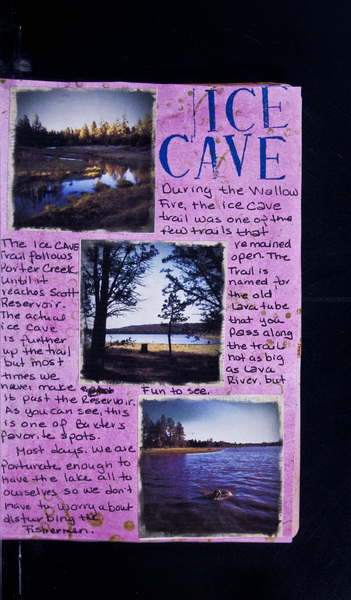 ICE
CAVE
During the Wallow
Fire, the ice cave
trail was one of the
few trails that
remained
open. The
Trail is
named for
the old
lava tube
that you
pass along
the trail
not as big
as Lava
River, but
Fun to see.
The Ice CAVE
Trail follows
Porter Creek
until it
reaches Scott
Reservoir.
The actual
ice cave
is further
up the trail
but most
times we
never make
it past the Reservoir.
As you can see, this
is one of Baxters
favorite spots.
Most days, we are
fortunate enough to
have the lake all to
ourselves so we don't
have to worry about
disturbing the
fishermen.